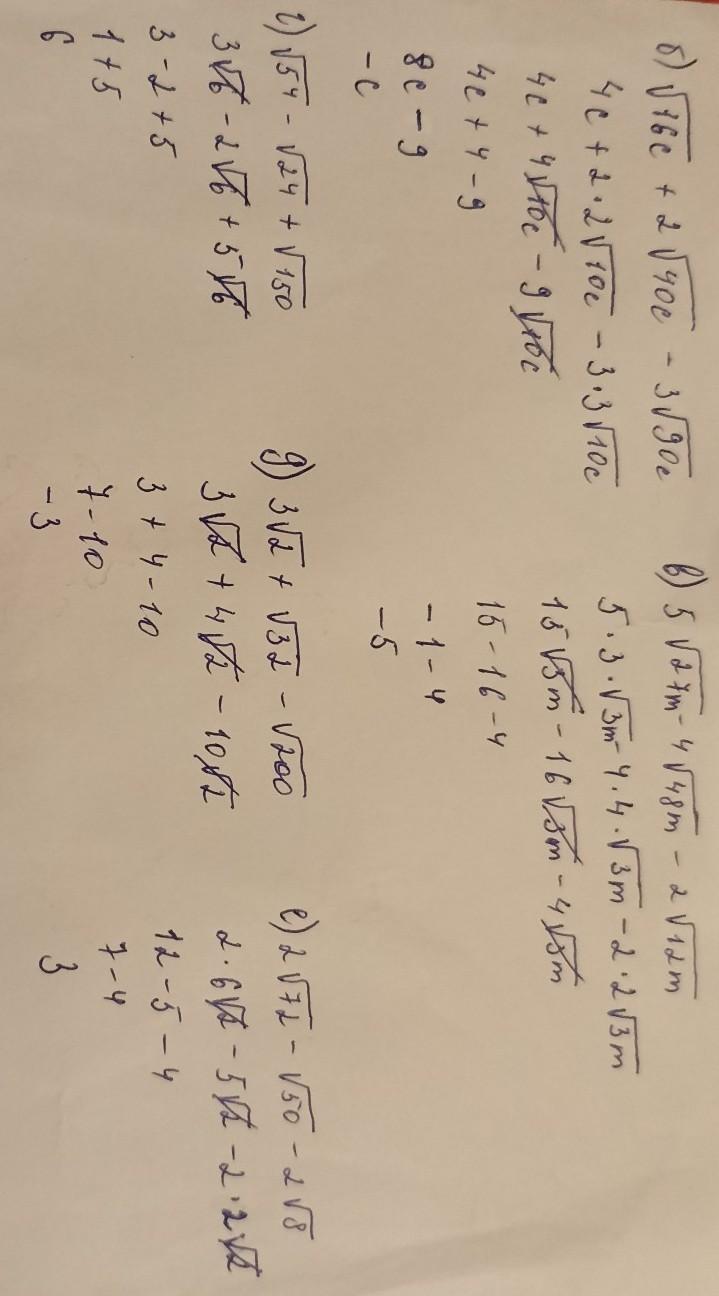 б) √16c + 2√40c − 3√90c
4c + 2·2√10c − 3·3√10c
4c + 4√10c − 9√10c
4c + 4 − 9
8c − 9
−c
в) 5√27m − 4√48m − 2√12m
5·3·√3m − 4·4·√3m − 2·2√3m
15√3m − 16√3m − 4√3m
15 − 16 − 4
−1 − 4
−5
г) √54 − √24 + √150
3√6 − 2√6 + 5√6
3 − 2 + 5
1 + 5
6
д) 3√2 + √32 − √200
3√2 + 4√2 − 10√2
3 + 4 − 10
7 − 10
−3
е) 2√72 − √50 − 2√8
2·6√2 − 5√2 − 2·2√2
12 − 5 − 4
7 − 4
3